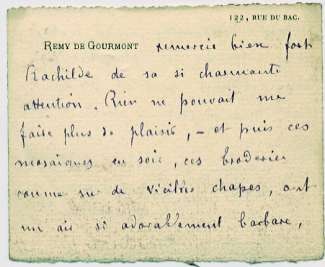 122, RUE DU BAC.
REMY DE GOURMONT remercie bien fort
Rachilde de sa si charmante
attention. Rien ne pouvait me
faire plus de plaisir, – et puis ces
mosaïques en soie, ces broderies
comme sur de vieilles chapes, ont
un air si adorablement barbare,